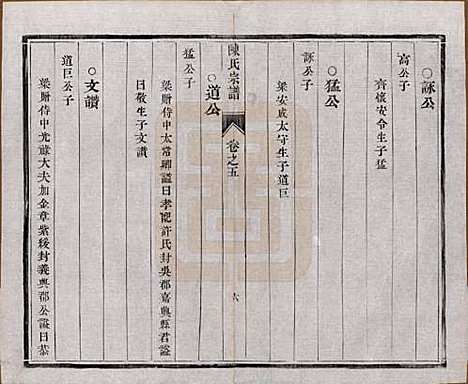 ○詠公
高公子
齊懷安令生子猛
○猛公
詠公子
梁安成太守生子道巨
陳氏宗譜
卷之五
六
○道公
猛公子
梁贈侍中太常卿謚曰孝配許氏封吳郡嘉興縣君謚
曰敬生子文讚
○文讚
道巨公子
梁贈侍中光祿大夫加金章紫綬封義興郡公謚曰恭